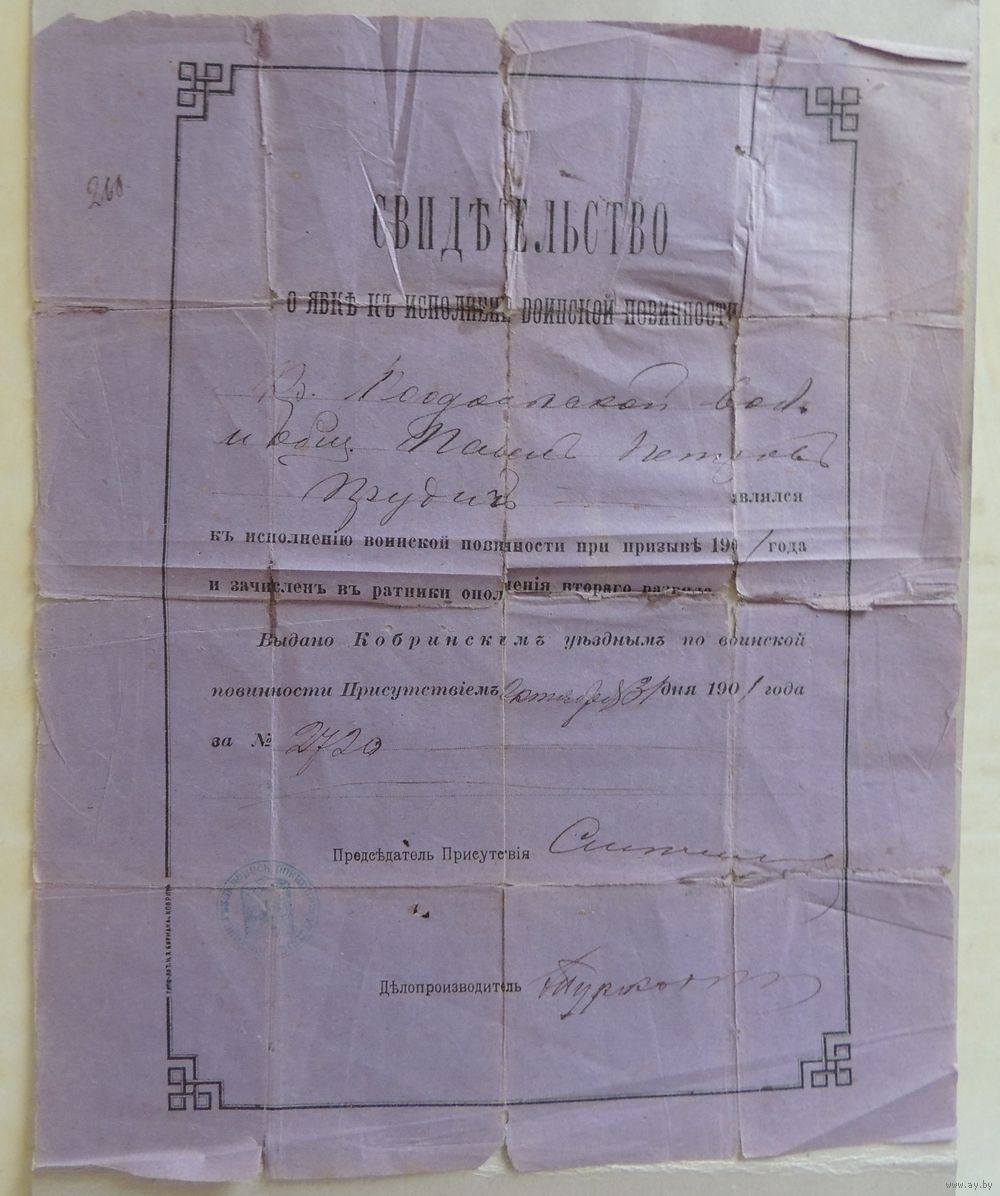 260.
СВИДѢТЕЛЬСТВО
О ЯВКѢ КЪ ИСПОЛНЕНІ ВОИНСКОЙ ПОВИННОСТИ
Кр. вол.
и общ. Павелъ Петровъ
Прудикъ являлся
къ исполненію воинской повинности при призывѣ 1901 года
и зачисленъ въ ратники ополченія втораго разряда
Выдано Кобринскимъ уѣзднымъ по воинской
повинности Присутствіемъ Октября 31 дня 1901 года
за № 2720
Предсѣдатель Присутствія
Дѣлопроизводитель
www.ay.by